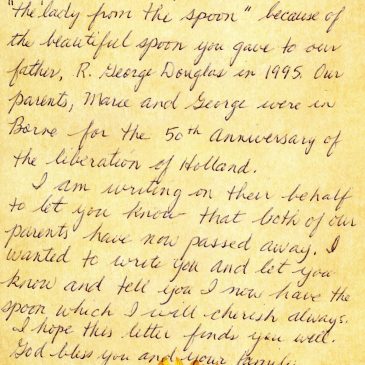 "the lady from the spoon" because of
the beautiful spoon you gave to our
father, R. George Douglas in 1995. Our
parents, Marie and George were in
Borne for the 50th anniversary of
the liberation of Holland.
I am writing on their behalf
to let you know that both of our
parents have now passed away. I
wanted to write you and let you
know and tell you I now have the
spoon which I will cherish always.
I hope this letter finds you well.
God bless you and your family